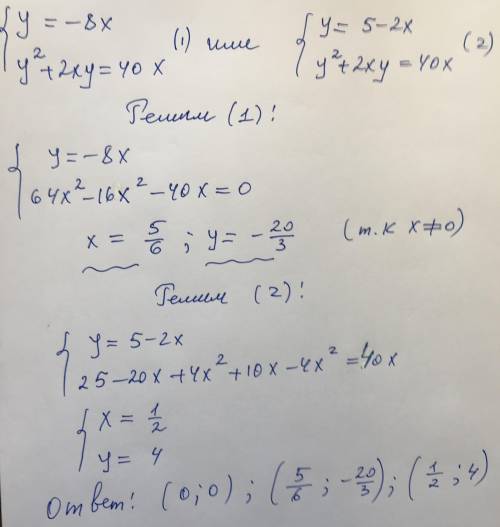 { y = -8x   (1) или   { y = 5-2x   (2)
{ y² + 2xy = 40x   { y² + 2xy = 40x
Решим (1):
{ y = -8x
{ 64x² - 16x² - 40x = 0
x = 5/6 ; y = - 20/3   (т.к x≠0)
Решим (2):
{ y = 5-2x
{ 25 - 20x + 4x² + 10x - 4x² = 40x
{ x = 1/2
{ y = 4
Ответ: (0;0) ; (5/6 ; -20/3) ; (1/2 ; 4)